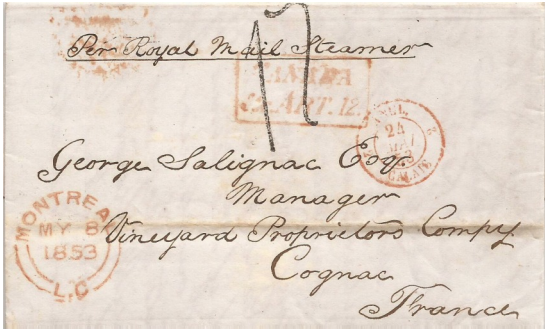 Per Royal Mail Steamer
17
CANADA
ART. 12.
ANGL.
24
MAI
53
2
CALAIS
George Salignac Esqr
Manager
Vineyard Proprietors Compy
Cognac
France
MONTREAL
MY 8
1853
L.C